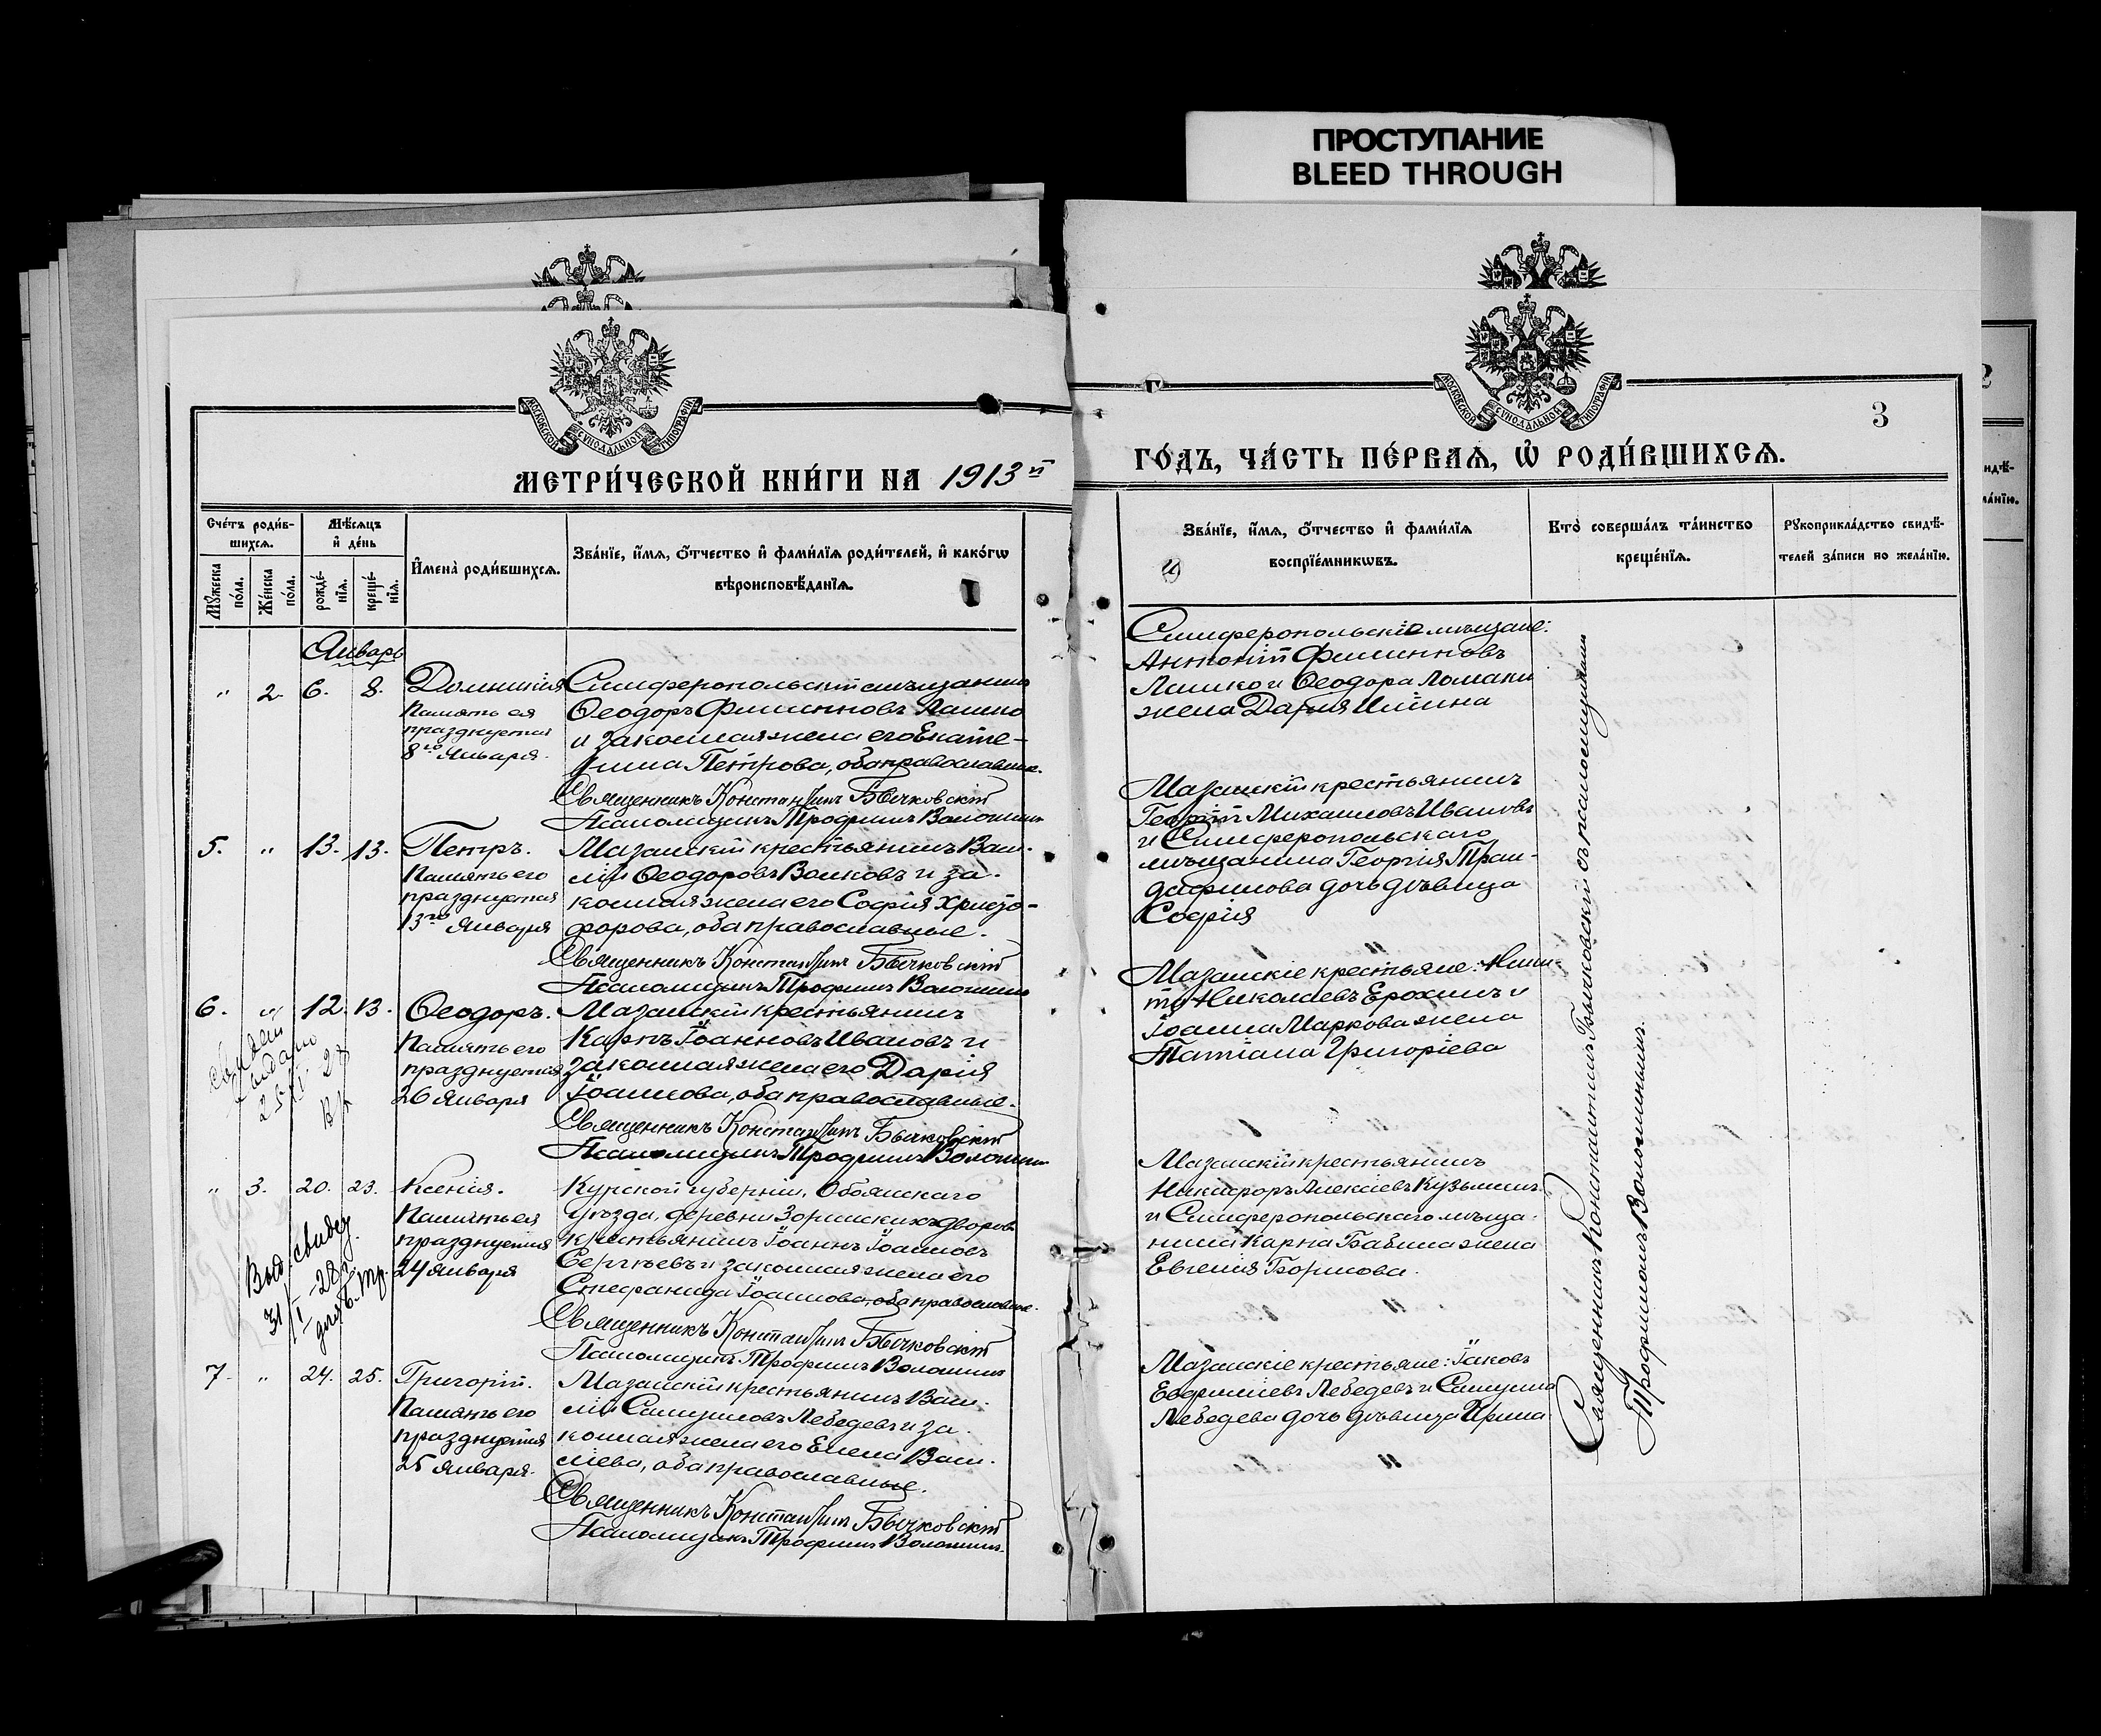 ПРОСТУПАНИЕ
BLEED THROUGH
МОСКОВСКОЙ СУНОДАЛЬНОЙ ТИПОГРАФІИ
МОСКОВСКОЙ СУНОДАЛЬНОЙ ТИПОГРАФІИ
3
МЕТРИ́ЧЕСКОЙ КНИ́ГИ НА 1913й
ГО́ДЪ, ЧА́СТЬ ПЕ́РВАѦ, Ѡ҆ РОДИ́ВШИХСѦ.
Сче́тъ роди́в-
шихсѧ.
Мѣ́сѧцъ
и҆ де́нь
Мꙋ́жеска
по́ла.
Же́нска
по́ла.
рожде́-
нїѧ.
креще́-
нїѧ.
И҆мена̀ роди́вшихсѧ.
Зва́нїе, и҆́мѧ, о҆́тчество и҆ фами́лїѧ роди́телей, и҆ како́гѡ
вѣроисповѣ́данїѧ.
Зва́нїе, и҆́мѧ, о҆́тчество и҆ фами́лїѧ
воспрїе́мникѡвъ.
Кто̀ соверша́лъ та́инство
креще́нїѧ.
Рꙋкоприкла́дство свидѣ́-
телей за́писи по жела́нїю.
Январь
" 2. 6. 8.
Домникія
Память ея
празднуется
8го Января.
Симферопольскій мѣщанинъ
Ѳеодоръ Филипповъ Лашко
и законная жена его Екате-
рина Петрова, оба православные.
Священникъ Константинъ Бычковскій
Псаломщикъ Трофимъ Волошинъ
Симферопольскіе мѣщане:
Антоній Филипповъ
Лашко и Ѳеодора Ломаки
жена Дарія Ильина
5. " 13. 13.
Петръ.
Память его
празднуется
13го Января
Мазанскій крестьянинъ Васи-
лій Ѳеодоровъ Волковъ и за-
конная жена его Софія Христо-
форова, оба православные.
Священникъ Константинъ Бычковскій
Псаломщикъ Трофимъ Волошинъ
Мазанскій крестьянинъ
Георгій Михаиловъ Ивановъ
и Симферопольскаго
мѣщанина Георгія Тран-
дафилова дочь дѣвица
Софія
6. " 12. 13.
Ѳеодоръ.
Память его
празднуется
26 Января
Мазанскій крестьянинъ
Карпъ Іоанновъ Ивановъ и
законная жена его Дарія
Іоаннова, оба православные.
Священникъ Константинъ Бычковскій
Псаломщикъ Трофимъ Волошинъ
Мазанскіе крестьяне: Ники-
та Николаевъ Ерохинъ и
Іоанна Маркова жена
Татіана Григоріева
" 3. 20. 23.
Ксенія.
Память ея
празднуется
24 Января
Выд. свидет.
31/I-28г.
Курской губерніи, Обоянскаго
уѣзда, деревни Зоринскихъ дворовъ
крестьянинъ Іоаннъ Іоанновъ
Сергѣевъ и законная жена его
Стефанида Іоаннова, оба православные.
Священникъ Константинъ Бычковскій
Псаломщикъ Трофимъ Волошинъ
Мазанскій крестьянинъ
Никифоръ Алексіевъ Кузьминъ
и Симферопольскаго мѣща-
нина Карпа Бабина жена
Евгенія Борисова.
7. " 24. 25.
Григорій.
Память его
празднуется
25 Января.
Мазанскій крестьянинъ Васи-
лій Самуиловъ Лебедевъ и за-
конная жена его Елена Васи-
ліева, оба православные.
Священникъ Константинъ Бычковскій
Псаломщикъ Трофимъ Волошинъ.
Мазанскіе крестьяне: Іаковъ
Евфиміевъ Лебедевъ и Самуила
Лебедева дочь дѣвица Ирина
Священникъ Константинъ Бычковскій съ псаломщикомъ
Трофимомъ Волошинымъ.